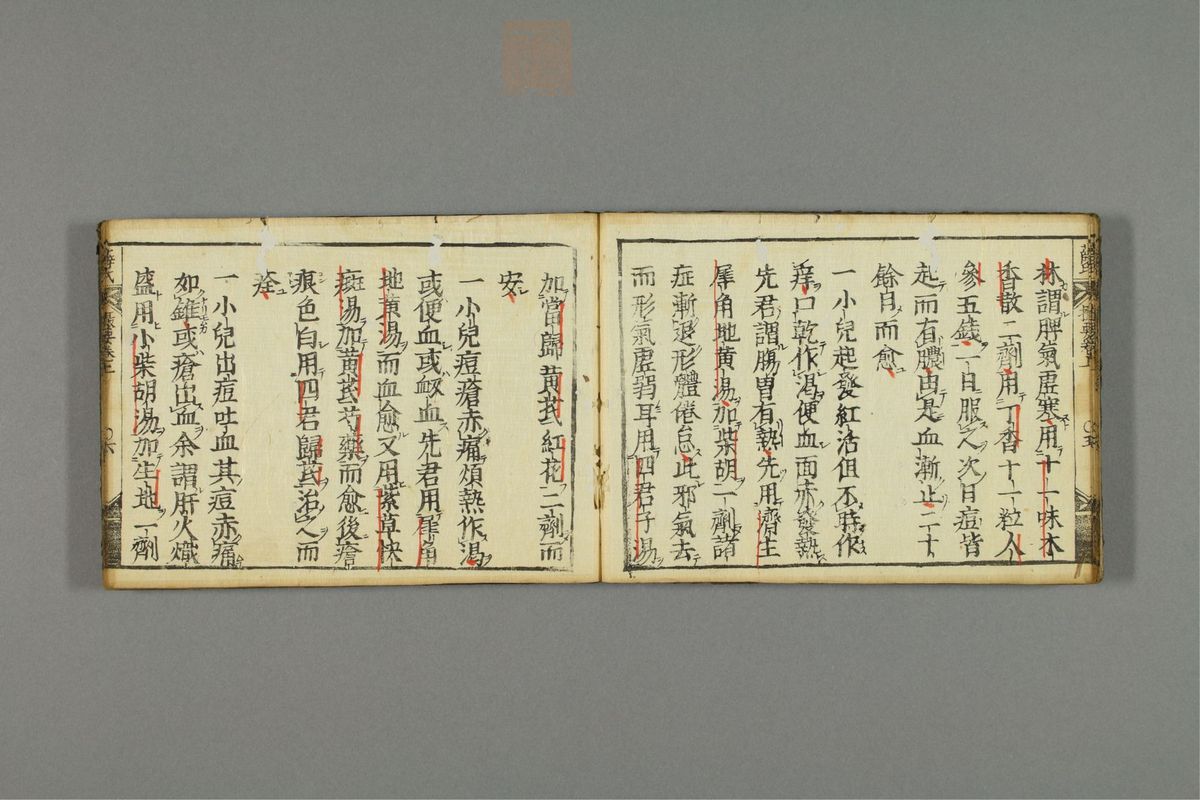 秫謂脾氣虛寒用十一味木
香散二劑用丁香十一粒人
參五錢一日服之次日痘皆
起而有膿由是血漸止二十
餘日而愈
一小兒起發紅活但不時作
痒口乾作渴便血面赤發熱
先君謂腸胃有熱先用濟生
犀角地黃湯加柴胡二劑諸
症漸退形體倦怠此邪氣去
而形氣虛弱耳用四君子湯
加當歸黃芪紅花二劑而
安
一小兒痘瘡赤痛煩熱作渴
或便血或衂血先君用犀角
地黃湯而血愈又用紫草快
斑湯加黃芪芍藥而愈後瘡
痕色白用四君歸芪治之而
痊
一小兒出痘吐血其痘赤痛
如錐或瘡出血余謂肝火熾
盛用小柴胡湯加生地一劑